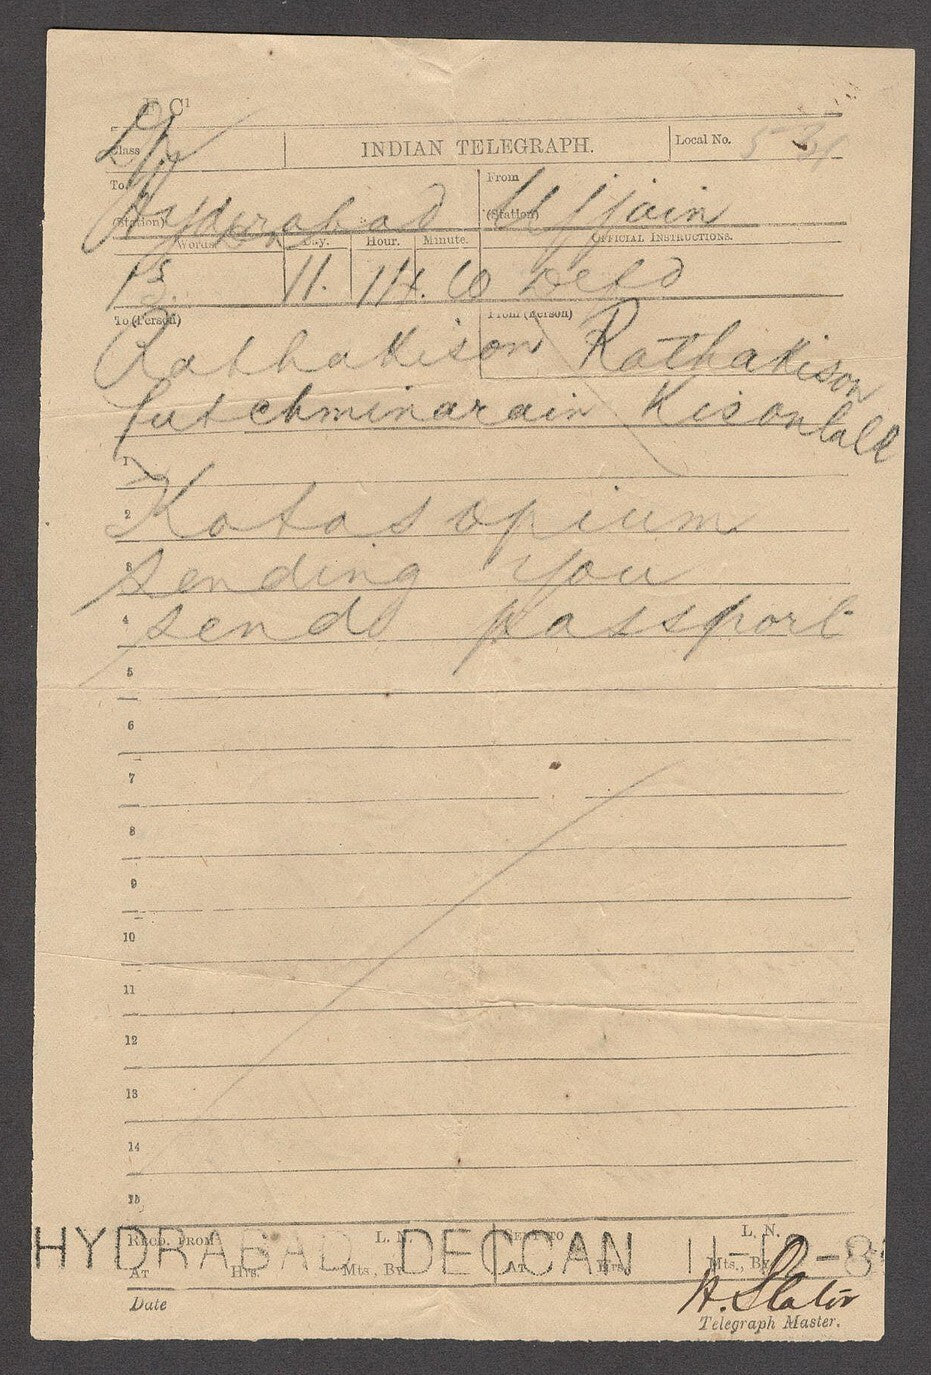 Class
INDIAN TELEGRAPH.
Local No.
To
From
(Station) Hyderabad
(Station) Ujjain
Words. Day. Hour. Minute.
OFFICIAL INSTRUCTIONS.
11.
To (Person)
From (Person)
Rathakison Rathakison
Lutchminarain Kisonlall
1
2 Kotas opium
3 sending you
4 send passport
5
6
7
8
9
10
11
12
13
14
15
HYDRABAD DECCAN
RECD. FROM L. N. SENT TO L. N.
AT Hrs. Mts., By AT Hrs. Mts., By
Date
H. Slator
Telegraph Master.